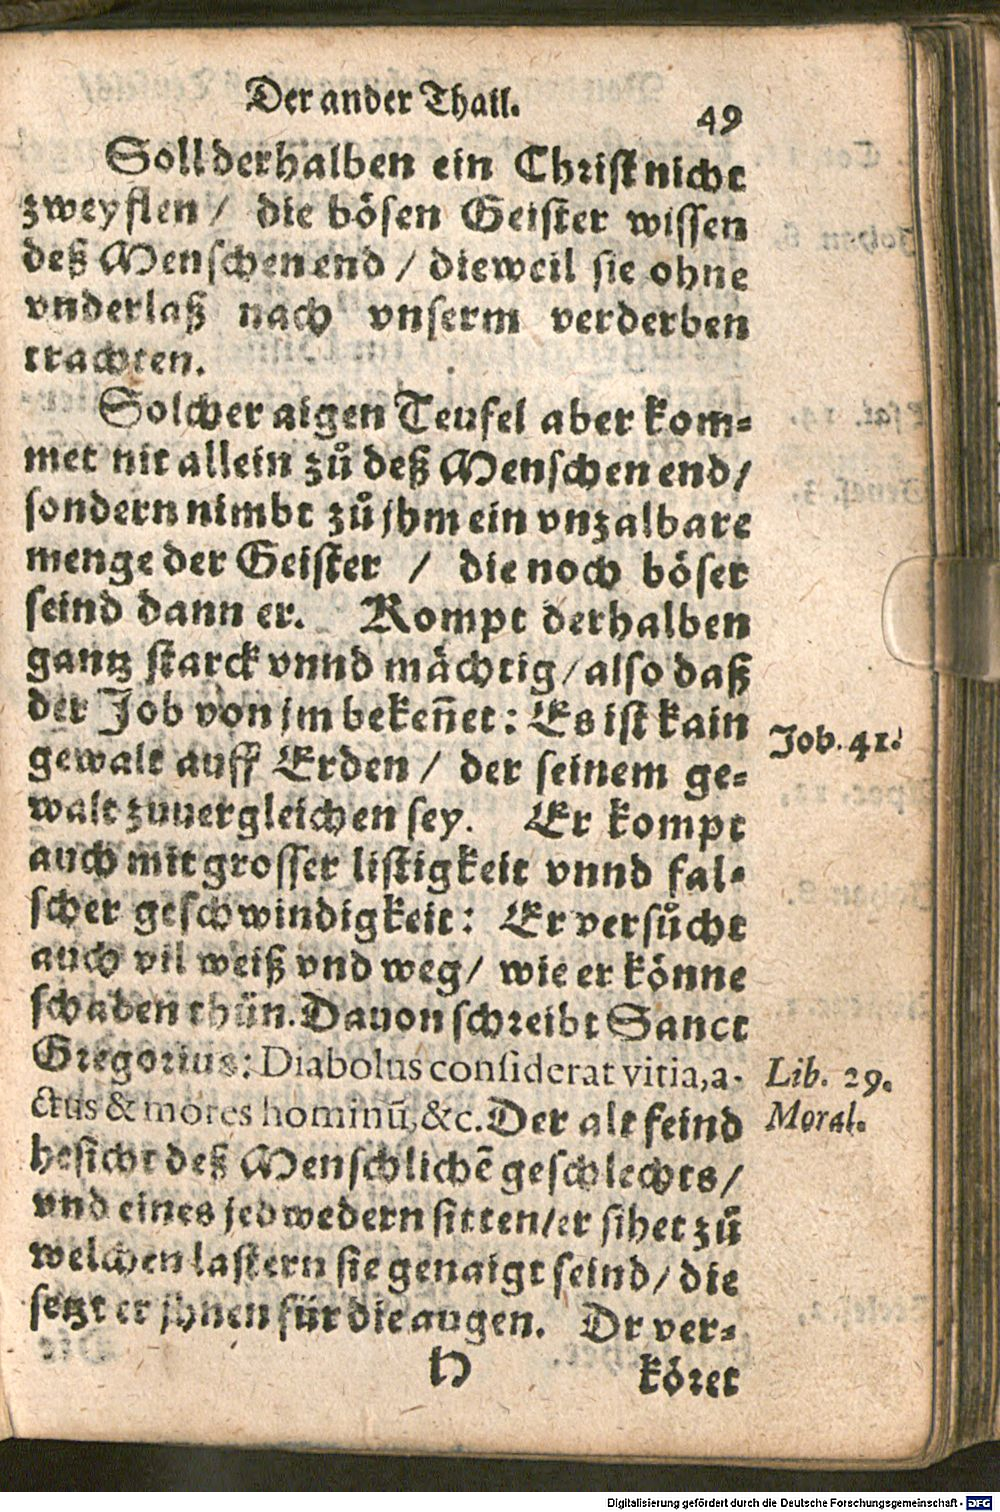 Der ander Thail.
49
Soll derhalben ein Christ nicht
zweyflen / die bösen Geister wissen
deß Menschen end / dieweil sie ohne
vnderlaß nach vnserm verderben
trachten.
Solcher aigen Teufel aber kom⸗
met nit allein zů deß Menschen end /
sondern nimbt zů jhm ein vnzalbare
menge der Geister / die noch böser
seind dann er. Kompt derhalben
gantz starck vnnd mächtig / also daß
der Job von jm bekeñet: Es ist kain
Job. 41.
gewalt auff Erden / der seinem ge⸗
walt zuuergleichen sey. Er kompt
auch mit grosser listigkeit vnnd fal⸗
scher geschwindigkeit: Er versůcht
auch vil weiß vnd weg / wie er könne
schaden thün. Dauon schreibt Sanct
Gregorius: Diabolus considerat vitia, a-
Lib. 29.
ctus & mores hominū, &c. Der alt feind
Moral.
besicht deß Menschlichē geschlechts /
vnd eines jedwedern sitten / er sihet zů
welchen lastern sie genaigt seind / die
setzt er jhnen für die augen. Dr ver⸗
H
köret
Digitalisierung gefördert durch die Deutsche Forschungsgemeinschaft - DFG